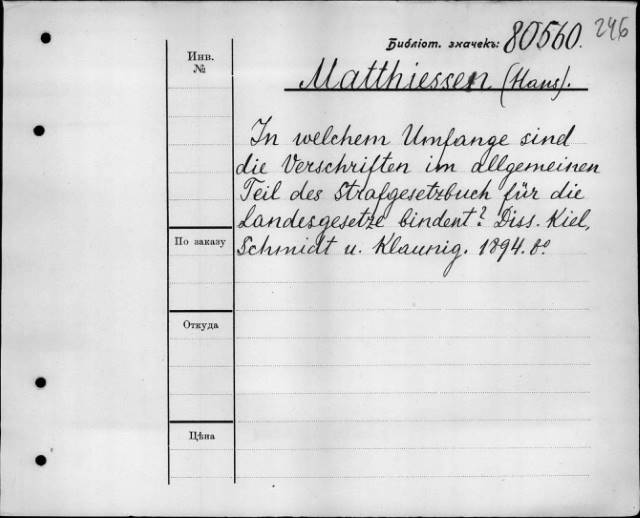 246
Библіот. значекъ: 80560.
Инв. №
Matthiessen (Hans).
In welchem Umfange sind
die Verschriften im allgemeinen
Teil des Strafgesetzbuch für die
Landesgesetze bindent? Diss. Kiel,
По заказу
Schmidt u. Klaunig. 1894. 8º
Откуда
Цѣна